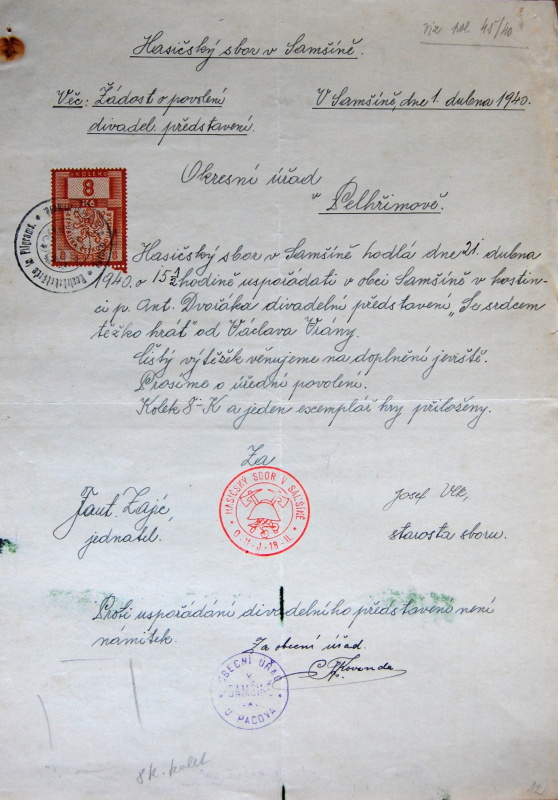 viz 45/40
Hasičský sbor v Samšíně.
Věc: Žádost o povolení
divadel. představení.
V Samšíně, dne 1. dubna 1940.
Okresní úřad
v
Pelhřimově.
KOLEK
8
Kč
Hasičský sbor v Samšíně hodlá dne 21. dubna
1940 o 15 1/2 hodině uspořádati v obci Samšíně v hostin-
ci p. Ant. Dvořáka divadelní představení „Se srdcem
těžko hrát" od Václava Vrány.
Čistý výtěžek věnujeme na doplnění jeviště.
Prosíme o úřední povolení.
Kolek 8 K a jeden exemplář hry přiloženy.
Za
HASIČSKÝ SBOR V SAMŠÍNĚ
Josef Vlk,
Zajíc,
jednatel.
starosta sboru.
Proti uspořádání divadelního představení není
námitek.
Za obecní úřad.
Kovanda
OBECNÍ ÚŘAD
V
SAMŠÍNĚ
U PACOVA
8 K. kolek
12